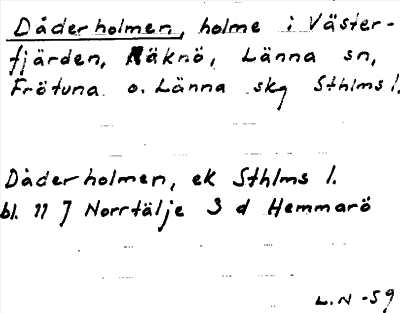 Dåderholmen, holme i Väster-
fjärden, Räknö, Länna sn,
Frötuna o. Länna skg Sthlms l.
Dåderholmen, ek Sthlms l.
bl. 11 J Norrtälje 3 d Hemmarö
L.N -59